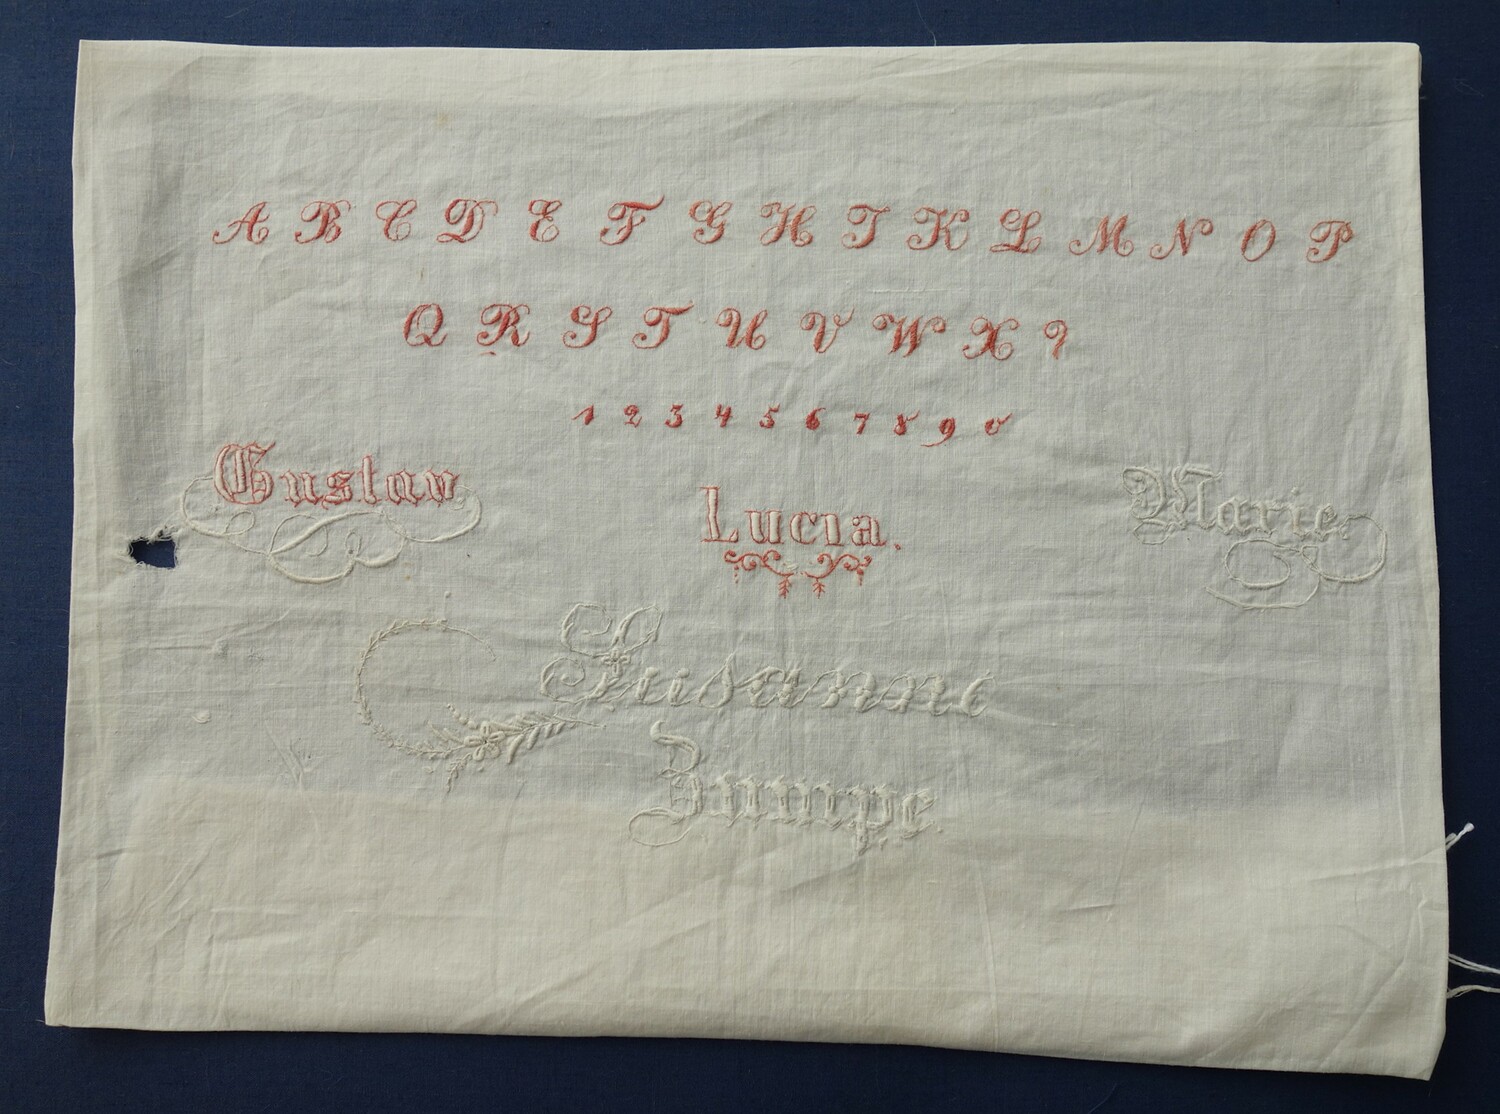 A B C D E F G H I K L M N O P
Q R S T U V W X Y
1 2 3 4 5 6 7 8 9 0
Gustav
Lucia.
Marie.
Susanne
Zumpe.